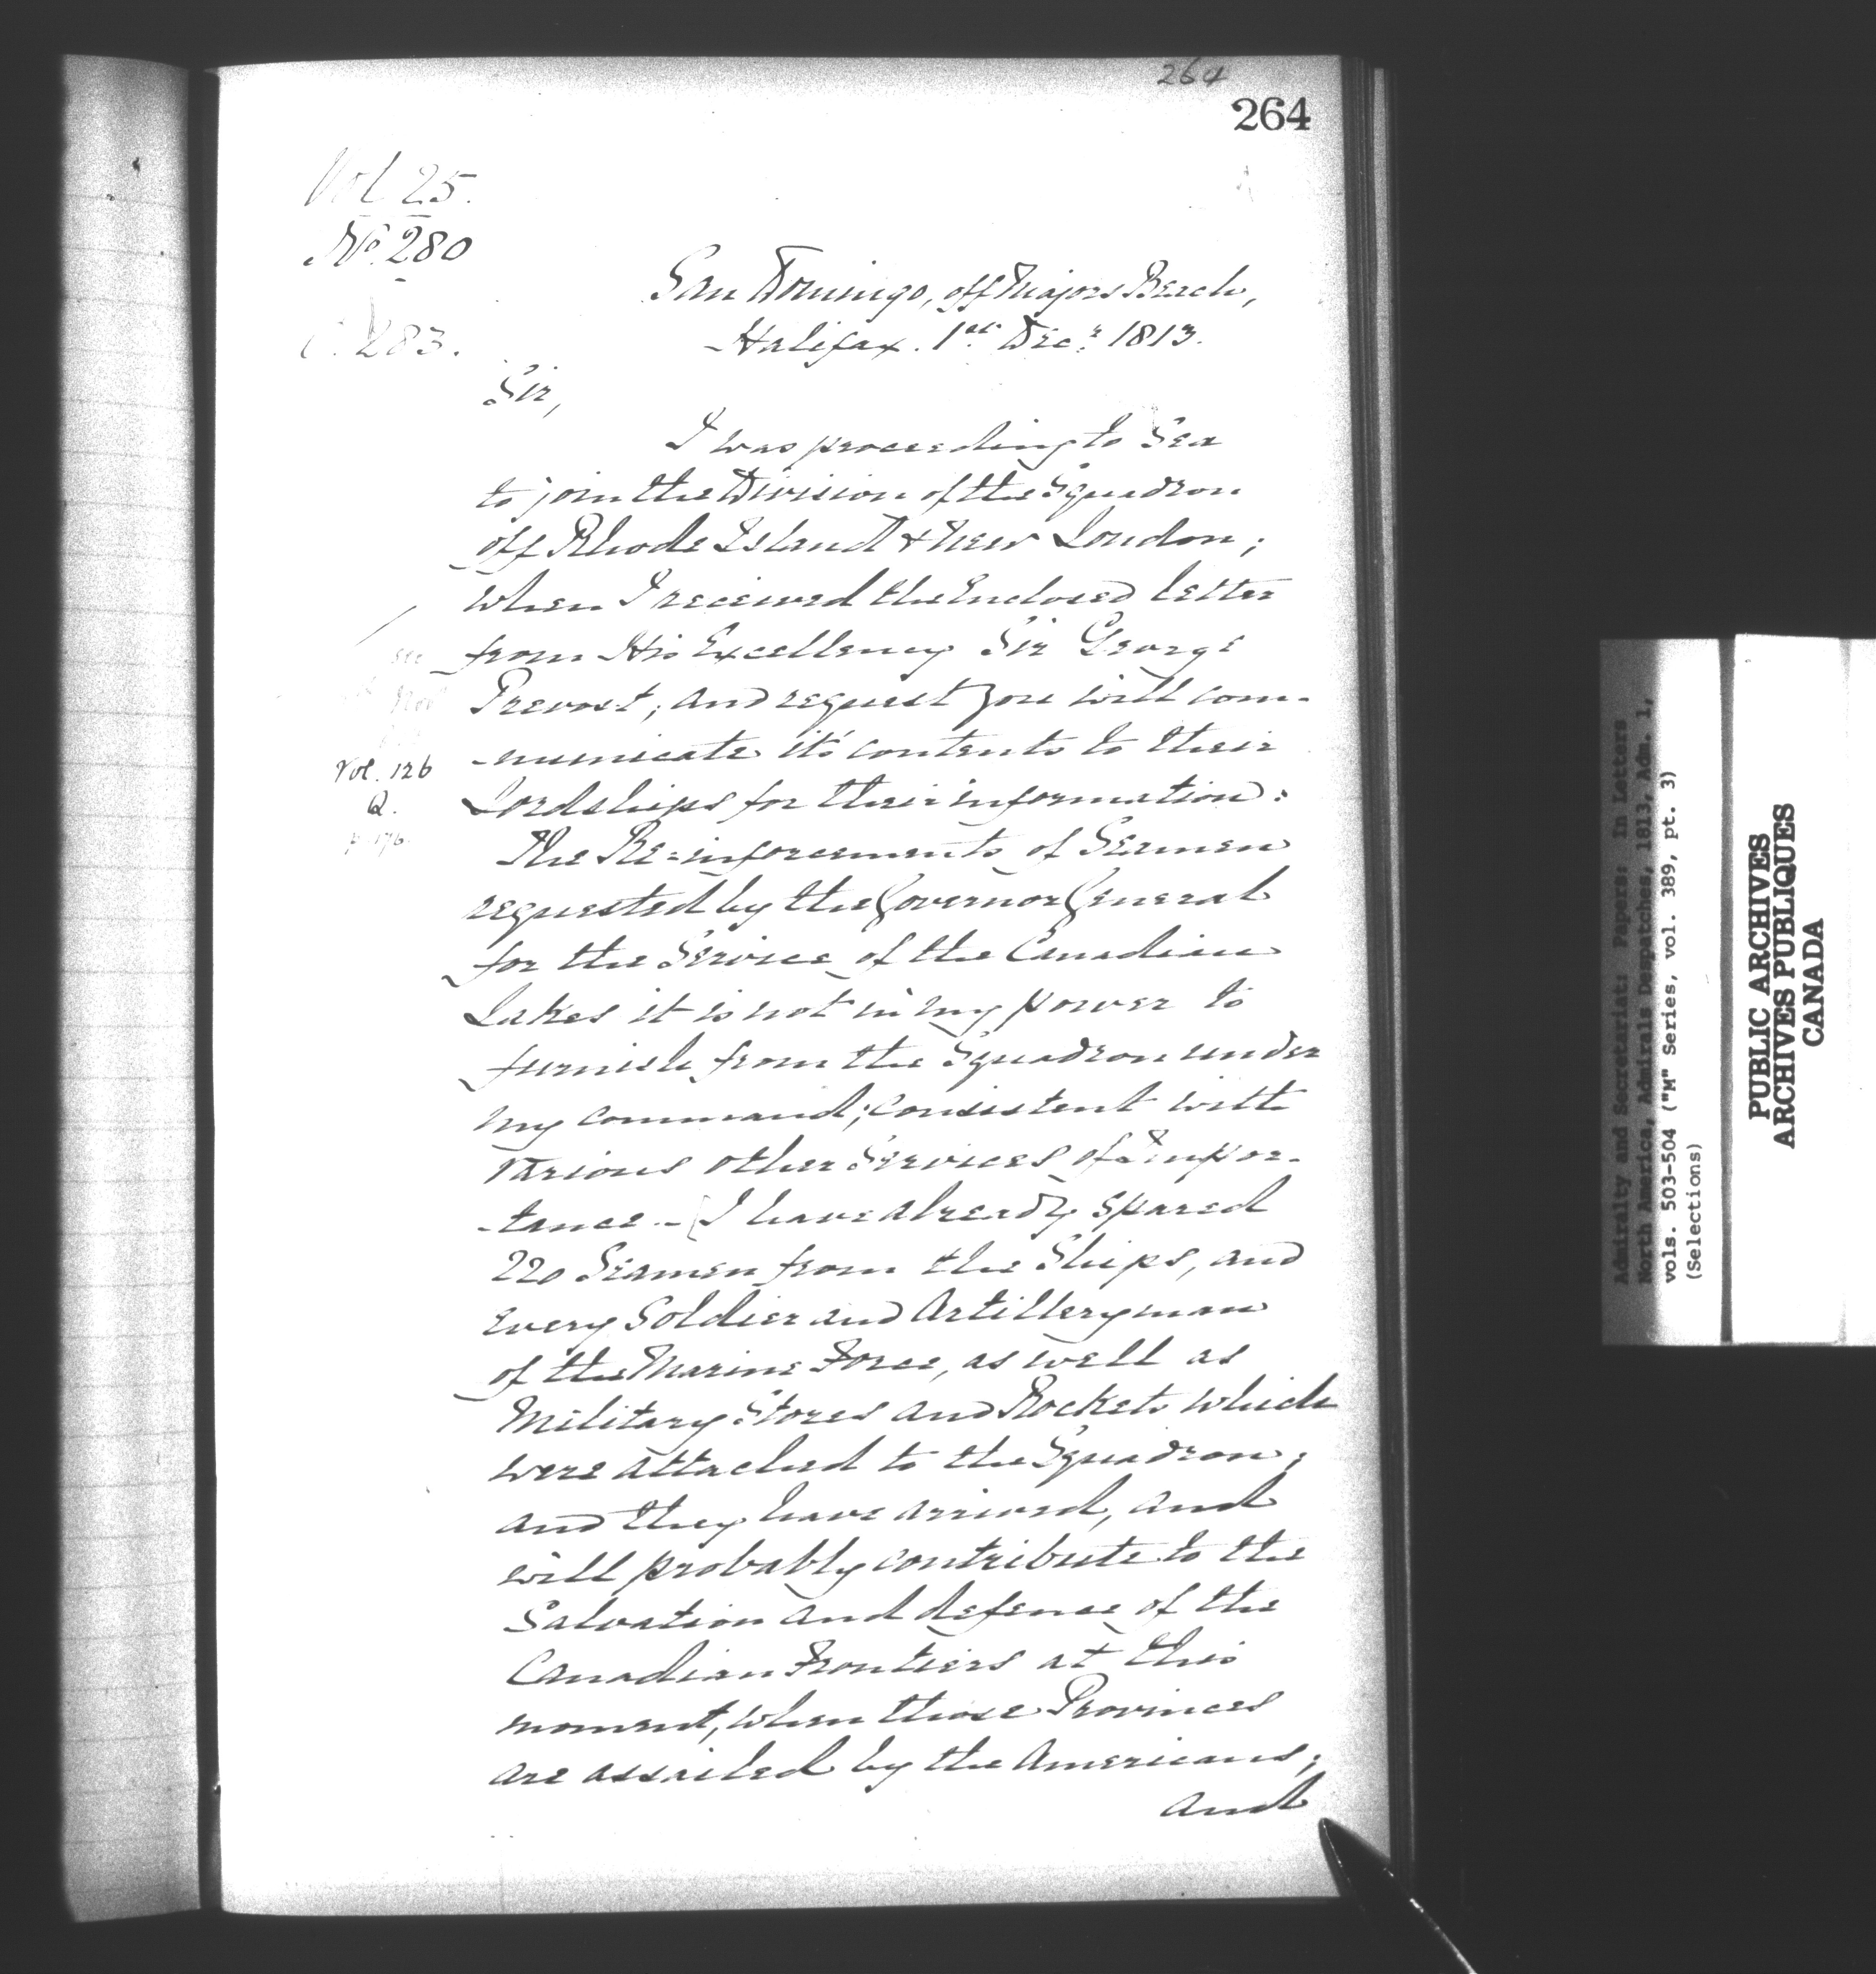 264
264
Vol 25.
No. 280
C. 283.
San Domingo, off Majors Beach,
Halifax. 1st Decr. 1813.
Sir,
I was proceeding to Sea
to join the Division of the Squadron
off Rhode Island & New London;
when I received the Enclosed letter
from His Excellency Sir George
Prevost; and request you will com-
-municate it's contents to their
Lordships for their information:
The Re=inforcements of Seamen
requested by the Governor General
for the Service of the Canadian
Lakes it is not in my power to
furnish from the Squadron under
my command; consistent with
various other Services of Impor-
-tance - I have already spared
220 Seamen from the Ships, and
every Soldier and Artilleryman
of the Marine Force, as well as
Military Stores and Rockets which
were attached to the Squadron;
and they have arrived, and
will probably contribute to the
Salvation and defence of the
Canadian Frontiers at this
moment, when those Provinces
are assailed by the Americans;
and
see
Nov
Vol. 126
Q.
p. 176.
Admiralty and Secretariat: Papers: In Letters
North America, Admirals Despatches, 1813, Adm. 1,
vols. 503-504 ("M" Series, vol. 389, pt. 3)
(Selections)
PUBLIC ARCHIVES
ARCHIVES PUBLIQUES
CANADA